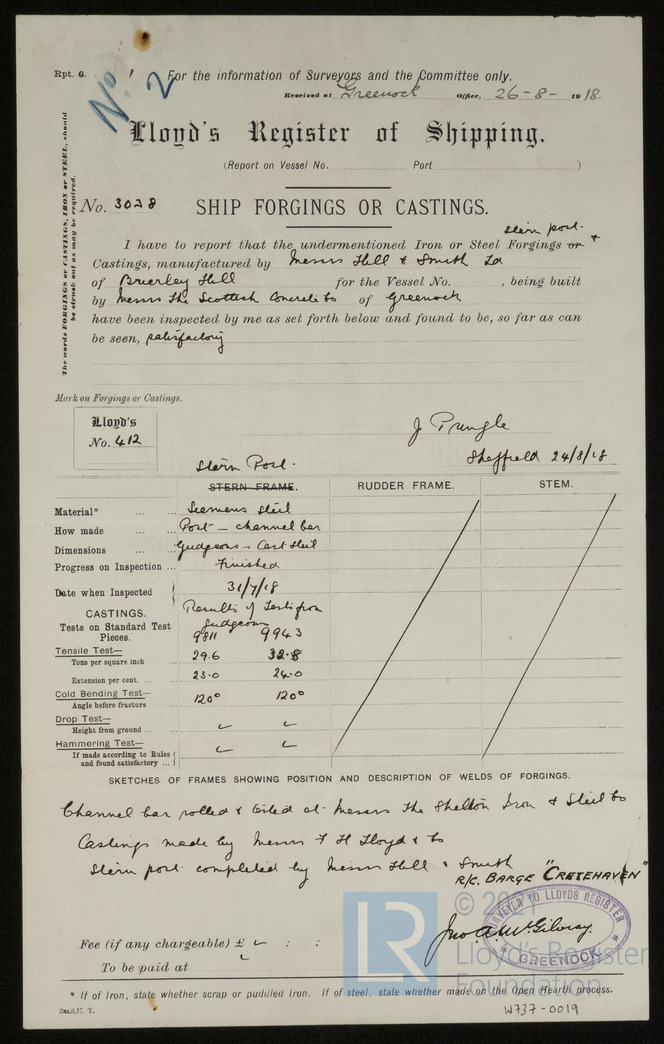 Rpt. 6.
No 2
For the information of Surveyors and the Committee only.
Received at Greenock Office, 26-8- 1918.
Lloyd's Register of Shipping.
(Report on Vessel No. Port )
The words FORGINGS or CASTINGS, IRON or STEEL, should be struck out as may be required.
No. 3028 SHIP FORGINGS OR CASTINGS.
stern post.
I have to report that the undermentioned Iron or Steel Forgings or +
Castings, manufactured by Messrs Hill & Smith Ld
of Brierley Hill for the Vessel No. , being built
by Messrs The Scottish Concrete Co of Greenock
have been inspected by me as set forth below and found to be, so far as can
be seen, satisfactory
Mark on Forgings or Castings.
Lloyd's
No. 412
J Pringle
Sheffield 24/8/18
Stern Post.
STERN FRAME. RUDDER FRAME. STEM.
Material* ... ... Siemens Steel
How made ... ... Post - channel bar
Dimensions ... ... Gudgeons - Cast Steel
Progress on Inspection ... Finished
Date when Inspected 31/7/18
CASTINGS. Results of Tests from
Tests on Standard Test gudgeons
Pieces. 9811 9943
Tensile Test—
Tons per square inch 29.6 32.8
Extension per cent. ... ... 23.0 24.0
Cold Bending Test—
Angle before fracture 120° 120°
Drop Test—
Height from ground ... ...
Hammering Test—
If made according to Rules
and found satisfactory ...
SKETCHES OF FRAMES SHOWING POSITION AND DESCRIPTION OF WELDS OF FORGINGS.
Channel bar rolled & tested at Messrs The Shelton Iron & Steel Co
Castings made by Messrs F H Lloyd & Co
Stern post completed by Messrs Hill & Smith
R/C. BARGE "CRETEHAVEN"
SURVEYOR TO LLOYDS REGISTER
Jno. A. McGilvray.
GREENOCK
Fee (if any chargeable) £ : :
To be paid at
* If of Iron, state whether scrap or puddled iron. If of steel, state whether made on the Open Hearth process.
2m,6,17. T.
W737-0019
LR
© 2021
Lloyd's Register
Foundation